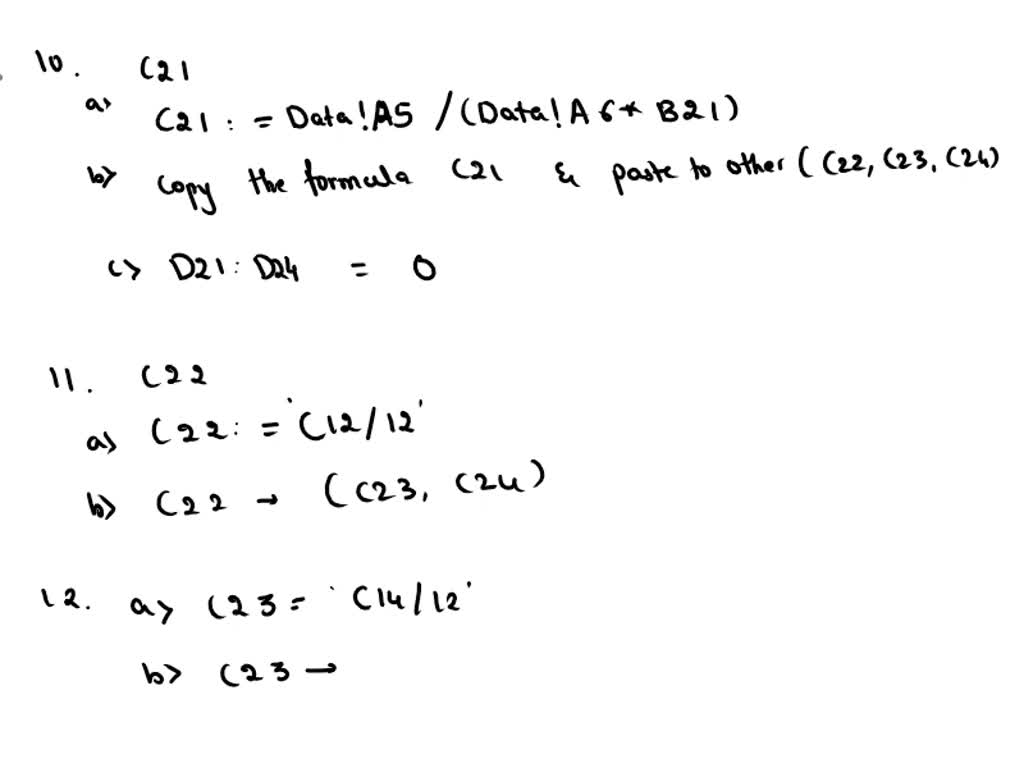 10. C21
a> C21 : = Data!A5 / (Data!A6* B21)
b> Copy the formula C21 & paste to other ( C22, C23, C24)
c> D21: D24 = 0
11. C22
a> C22: = 'C12/12'
b> C22 → (C23, C24)
12. a> C23 = 'C14/12'
b> C23 →